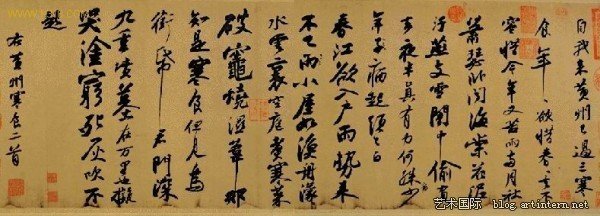 自我來黃州已過三寒
食年〻欲惜春〻去不
容惜今年又苦雨兩月秋
蕭瑟臥聞海棠花泥
汙燕支雪闇中偷負
去夜半真有力何殊少
年子病起頭已白
春江欲入戶雨勢來
不已雨小屋如漁舟濛〻
水雲裏空庖煮寒菜
破竈燒濕葦那
知是寒食但見烏
銜帋君門深
九重墳墓在万里也擬
哭塗窮死灰吹不
起
右黃州寒食二首
艺术国际
blog.artintern.net